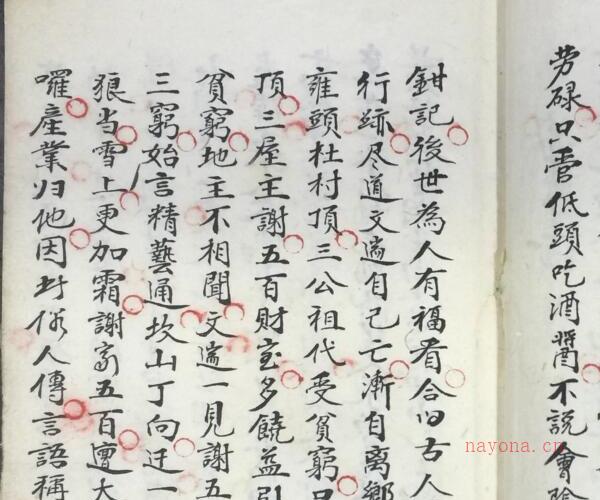 劳碌只管低頭吃酒醬不說會
鉗記後世為人有福看合四古人
行跡尽道文遄自己亡漸自离鄉
雍頭杜村頂三公祖代受貧窮
頂三屋主謝五百財宝多饒益
貧窮地主不相聞文遄一見謝五
三窮始言精藝通坎山丁向迁一
狼当雪上更加霜謝家五百遭大
囉產業归他因此俗人傳言語稱
nayona.cn